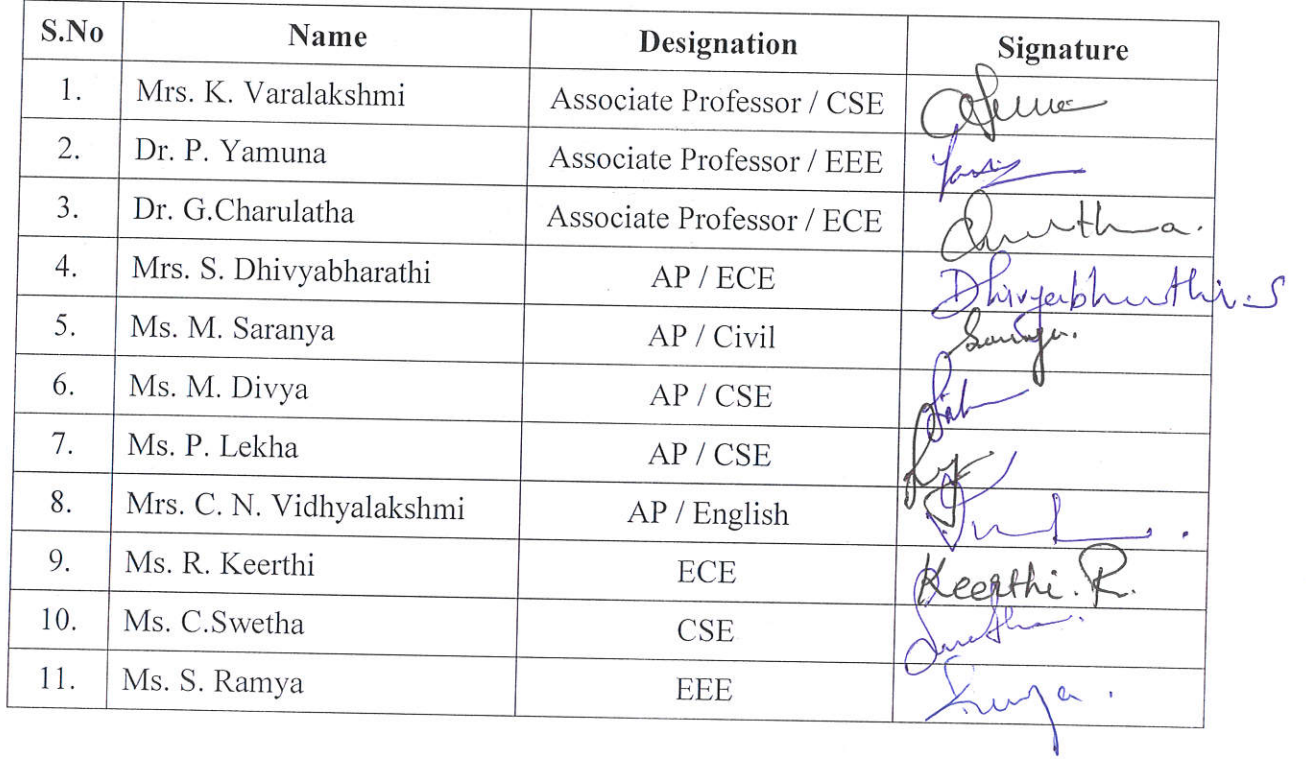 S.No Name Designation Signature
1. Mrs. K. Varalakshmi Associate Professor / CSE
2. Dr. P. Yamuna Associate Professor / EEE
3. Dr. G.Charulatha Associate Professor / ECE
4. Mrs. S. Dhivyabharathi AP / ECE Dhivyabharathi.S
5. Ms. M. Saranya AP / Civil
6. Ms. M. Divya AP / CSE
7. Ms. P. Lekha AP / CSE
8. Mrs. C. N. Vidhyalakshmi AP / English
9. Ms. R. Keerthi ECE Keerthi.R.
10. Ms. C.Swetha CSE
11. Ms. S. Ramya EEE